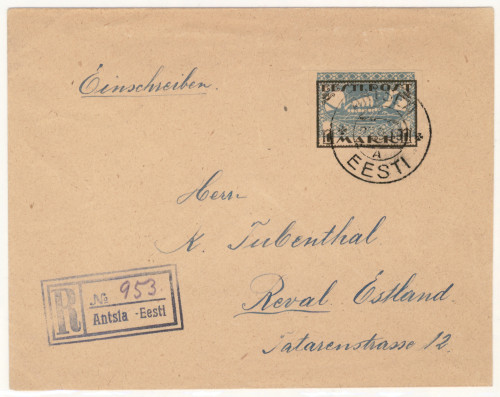 Einschreiben.
EESTI POST
MARK
A
EESTI
Herrn
K. Tubenthal
Reval. Estland.
Tatarenstrasse 12.
R
№ 953.
Antsla -Eesti